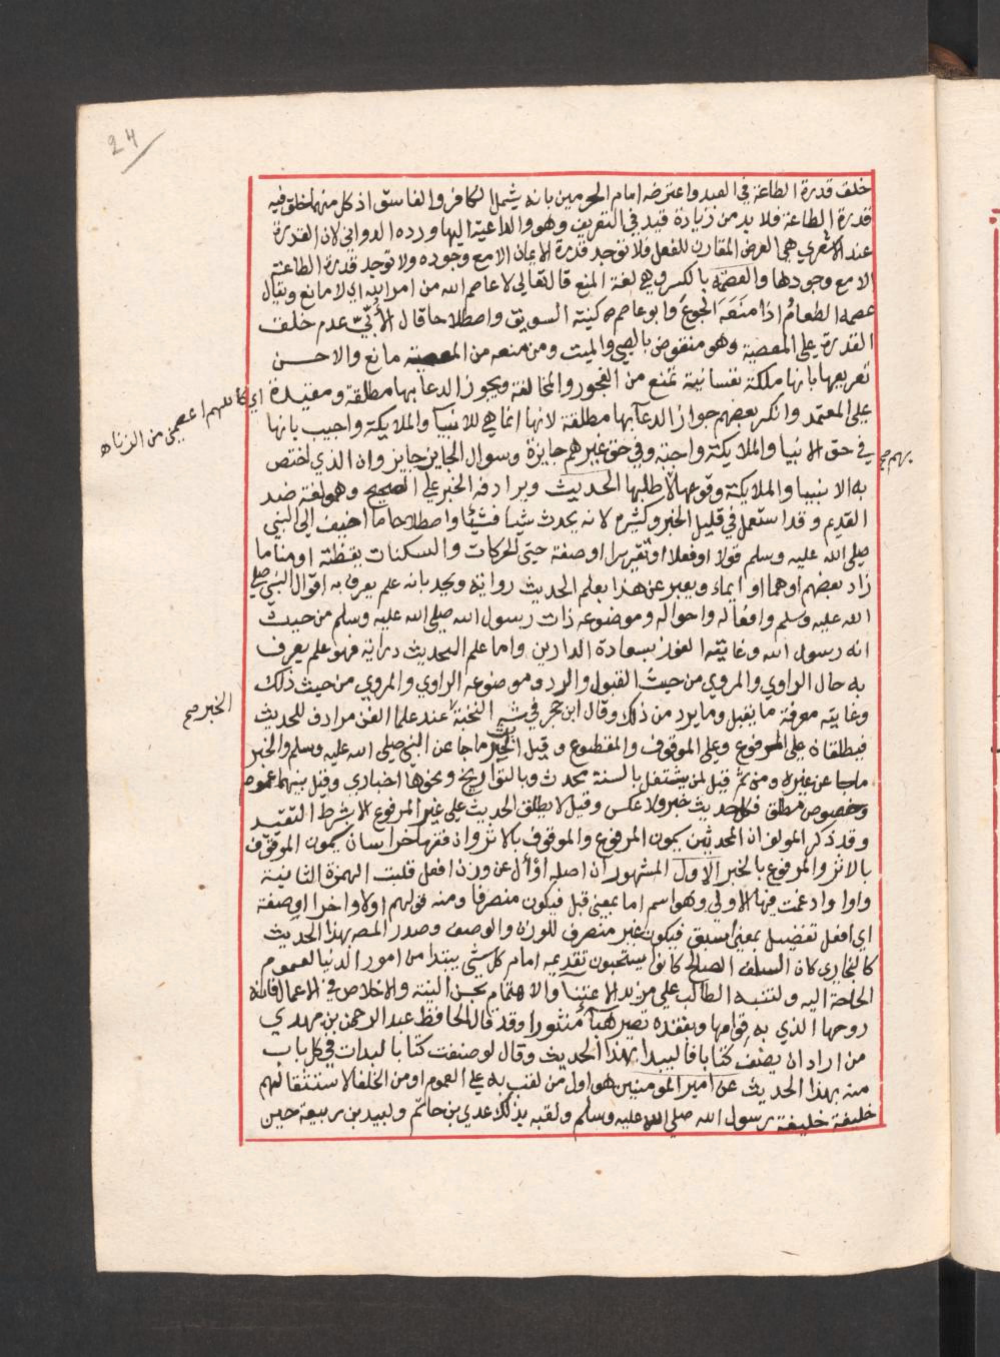 24
خلق قدرة الطاعة في العبد واعترضه امام الحرمين بانه يشمل الكافر والفاسق اذ كل منهما خلق فيه
قدرة الطاعة فلا بد من زيادة قيد في التعريف وهو والداعية اليها ورده الدواني لان القدرة
عند الاشعري هي العرض المقارن للفعل فلا توجد قدرة الايمان الا مع وجوده ولا توجد قدرة الطاعة
الا مع وجودها والعصمة بالكسر وهي لغة المنع قال تعالى لا عاصم الله من امر ابيه اي لا مانع ويقال
عصمه الطعام اذا منعه الجوع وابو عاصم كنية السويق واصطلاحا قال الأبيّ عدم خلق
القدرة على المعصية وهو منقوض بالصبي والميت ومن منعه من المعصية مانع والاحسن
تعريفها بانها ملكة نفسانية تمنع من الفجور والمخالفة ويجوز الدعا بها مطلقة ومقيدة
اي كاللهم اعصمني من الزناه
على المعتمد وانكر بعضهم جواز الدعا بها مطلقة لانها انما هي للانبيا والملايكة واجيب بانها
في حق الانبيا والملايكة واجبة وفي حق غيرهم جايزة وسوال الجايز جايز وان الذي اختص
بهم صح
به الانبيا والملايكة وقوعها لا طلبها الحديث ويرادفه الخبر على الصحيح وهو لغة ضد
القديم وقد استعمل في قليل الخبر وكثيره لانه يحدث شيا فشيئا واصطلاحا ما اضيف الى النبي
صلى الله عليه وسلم قولا او فعلا او تقريرا او صفة حتى الحركات والسكنات يقظة او مناما
زاد بعضهم او هما او ايماء ويعبر عن هذا بعلم الحديث رواية ويحد بانه علم يعرف به اقوال النبي صلى
الله عليه وسلم وافعاله واحواله وموضوعه ذات رسول الله صلى الله عليه وسلم من حيث
انه رسول الله وغايته الفوز بسعادة الدارين واما علم الحديث دراية فهو علم يعرف
به حال الراوي والمروي من حيث القبول والرد وموضوعه الراوي والمروي من حيث ذلك
وغايته معرفة ما يقبل وما يرد من ذلك وقال ابن حجر في شرح النخبة عند علما الفن مرادف للحديث
الخبر صح
فيطلقان على المرفوع وعلى الموقوف والمقطوع وقيل الحديث ما جا عن النبي صلى الله عليه وسلم والخبر
ما جا عن غيره ومن ثم قيل لمن يشتغل بالسنة محدث وبالتواريخ ونحوها اخباري وقيل بينهما عموم
وخصوص مطلق فكل حديث خبر ولا عكس وقيل لا يطلق الحديث على غير المرفوع الا بشرط التقييد
وقد ذكر المولف ان المحدثين يسمون المرفوع والموقوف بالاثر وان فقها خراسان يسمون الموقوف
بالاثر والمرفوع بالخبر الاول المشهور ان اصله اوأل على وزن افعل قلبت الهمزة الثانية
واوا وادغمت فيها الاولى وهو اسم اما بمعنى قبل فيكون منصرفا ومنه قولهم اولا واخرا او صفة
اي افعل تفضيل بمعنى اسبق فيكون غير منصرف للوزن والوصف وصدر المص بهذا الحديث
كالبخاري لان السلف الصالح كانوا يستحبون تقديمه امام كل شي يبتدا من امور الدنيا لعموم
الحاجة اليه ولتنبه الطالب على مزيد الاعتنا والاهتمام بحسن النية والاخلاص في الاعمال فانه
روحها الذي به قوامها وبفقده تصير هباً منثورا وقد قال الحافظ عبد الرحمن بن مهدي
من اراد ان يصنف كتابا فاليبدا بهذا الحديث وقال لو صنفت كتابا لبدات في كل باب
منه بهذا الحديث عن امير المومنين هو اول من لقب به على العموم او من الخلفا لاستثقالهم
خليفة خليفة رسول الله صلى الله عليه وسلم ولقبه بذلك عدي بن حاتم ولبيد بن ربيعة حين